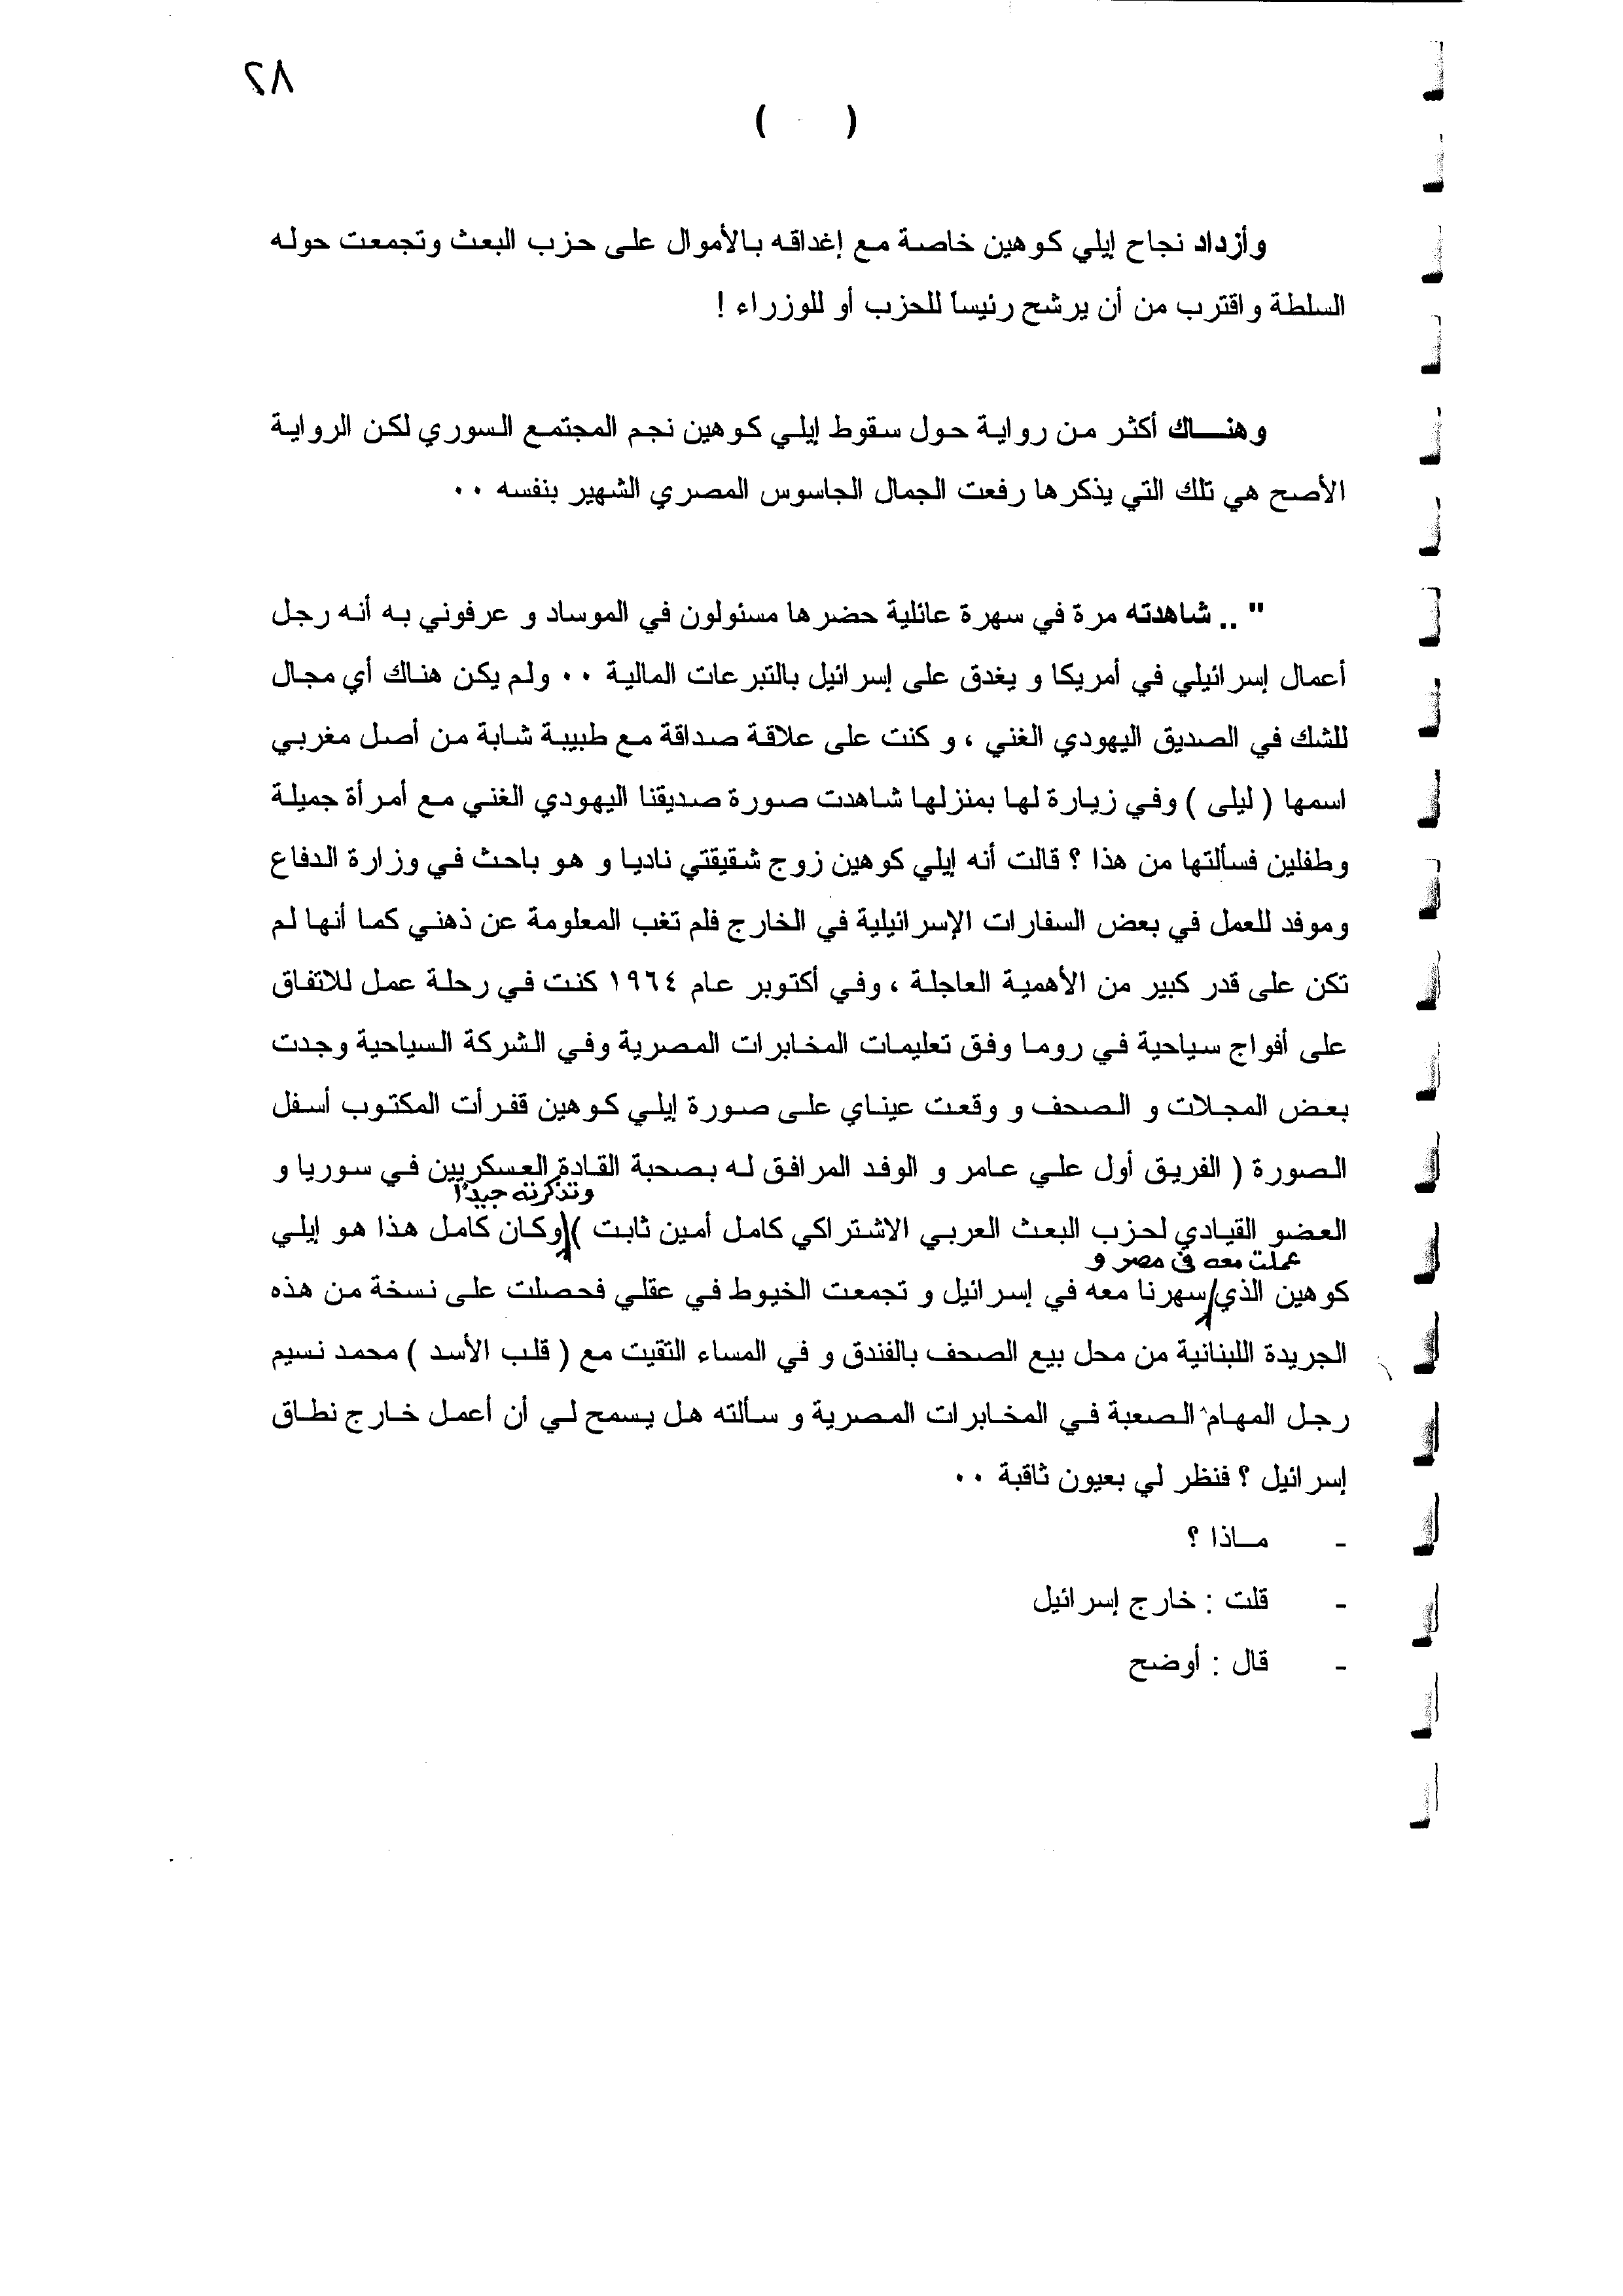 ٢٨
( )
وأزداد نجاح إيلي كوهين خاصة مع إغداقه بالأموال على حزب البعث وتجمعت حوله
السلطة واقترب من أن يرشح رئيساً للحزب أو للوزراء !
وهنـــاك أكثر من رواية حول سقوط إيلي كوهين نجم المجتمع السوري لكن الرواية
الأصح هي تلك التي يذكرها رفعت الجمال الجاسوس المصري الشهير بنفسه ٠٠
" .. شاهدته مرة في سهرة عائلية حضرها مسئولون في الموساد و عرفوني به أنه رجل
أعمال إسرائيلي في أمريكا و يغدق على إسرائيل بالتبرعات المالية ٠٠ ولم يكن هناك أي مجال
للشك في الصديق اليهودي الغني ، و كنت على علاقة صداقة مع طبيبة شابة من أصل مغربي
اسمها ( ليلى ) وفي زيارة لها بمنزلها شاهدت صورة صديقنا اليهودي الغني مع أمرأة جميلة
وطفلين فسألتها من هذا ؟ قالت أنه إيلي كوهين زوج شقيقتي ناديا و هو باحث في وزارة الدفاع
وموفد للعمل في بعض السفارات الإسرائيلية في الخارج فلم تغب المعلومة عن ذهني كما أنها لم
تكن على قدر كبير من الأهمية العاجلة ، وفي أكتوبر عام ١٩٦٤ كنت في رحلة عمل للاتفاق
على أفواج سياحية في روما وفق تعليمات المخابرات المصرية وفي الشركة السياحية وجدت
بعض المجلات و الصحف و وقعت عيناي على صورة إيلي كوهين قفرأت المكتوب أسفل
الصورة ( الفريق أول علي عامر و الوفد المرافق له بصحبة القادة العسكريين في سوريا و
وتذكرته جيداً
العضو القيادي لحزب البعث العربي الاشتراكي كامل أمين ثابت ) وكان كامل هذا هو إيلي
عملت معه فى مصر و
كوهين الذي سهرنا معه في إسرائيل و تجمعت الخيوط في عقلي فحصلت على نسخة من هذه
الجريدة اللبنانية من محل بيع الصحف بالفندق و في المساء التقيت مع ( قلب الأسد ) محمد نسيم
رجل المهام الصعبة في المخابرات المصرية و سألته هل يسمح لي أن أعمل خارج نطاق
إسرائيل ؟ فنظر لي بعيون ثاقبة ٠٠
- مــاذا ؟
- قلت : خارج إسرائيل
- قال : أوضح